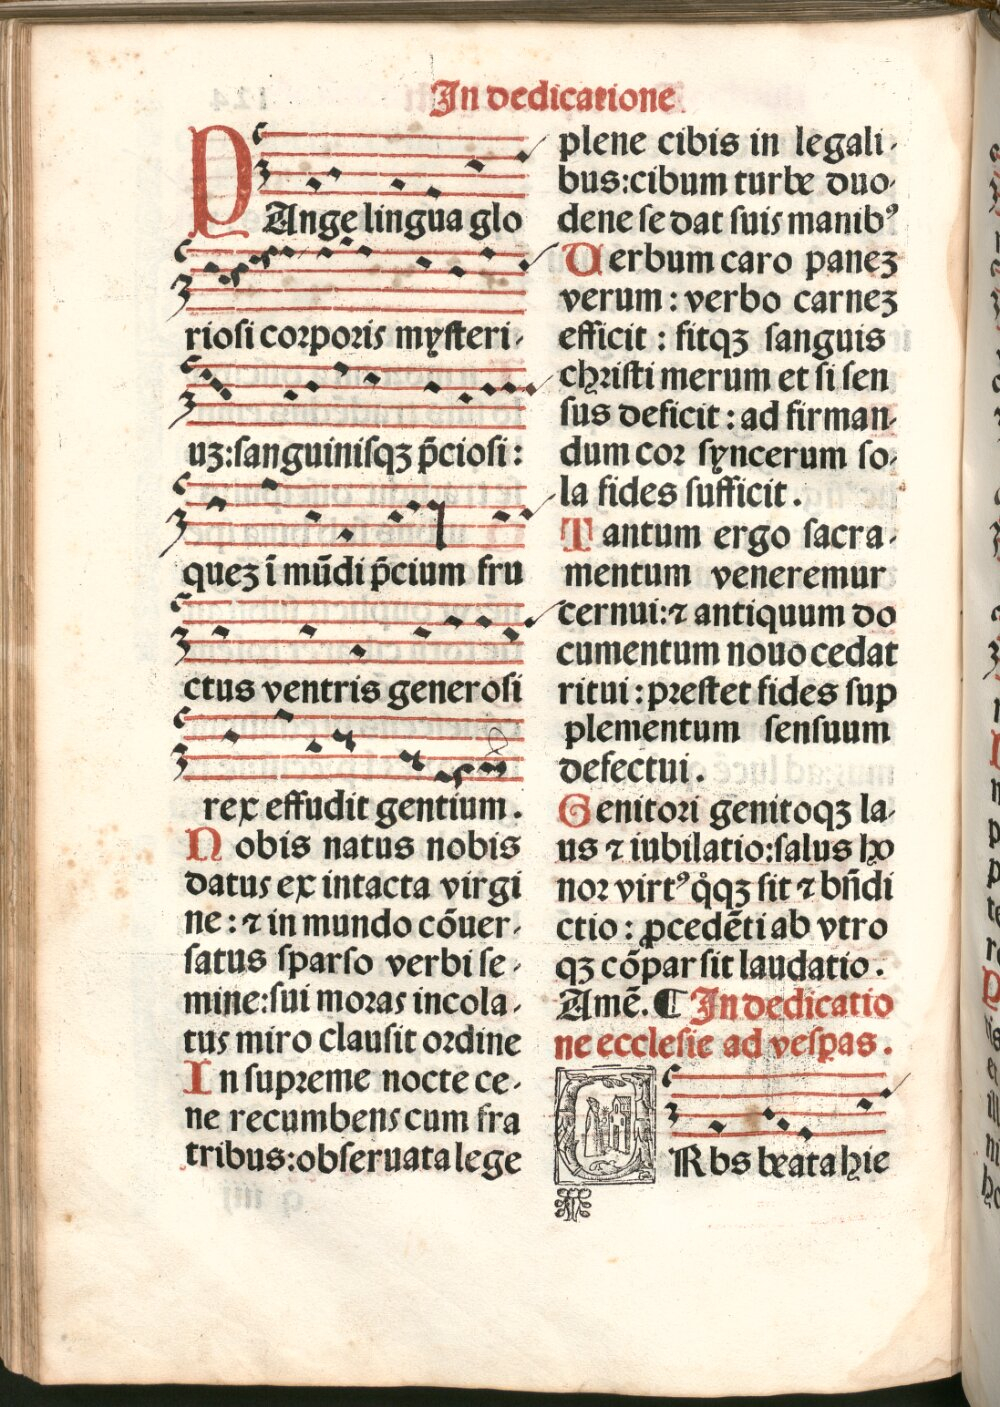 In dedicatione
PAnge lingua glo
riosi corporis mysteri-
uʒ:sanguinisqʒ p̄ciosi:
queʒ ī mūdi p̄cium fru
ctus ventris generosi
rex effudit gentium.
Nobis natus nobis
datus ex intacta virgi
ne: ⁊ in mundo cōuer-
satus sparso verbi se-
mine:sui moras incola-
tus miro clausit ordine
In supreme nocte ce-
ne recumbens cum fra
tribus:obseruata lege
plene cibis in legali-
bus:cibum turbe duo-
dene se dat suis manibꝰ
Verbum caro paneʒ
verum: verbo carneʒ
efficit: fitqʒ sanguis
christi merum et si sen
sus deficit: ad firman-
dum cor syncerum so-
la fides sufficit.
Tantum ergo sacra-
mentum veneremur
cernui:⁊ antiquum do
cumentum nouo cedat
ritui: prestet fides sup
plementum sensuum
defectui.
Genitori genitoqʒ la-
us ⁊ iubilatio:salus ho
nor virtꝰ q̊qʒ sit ⁊ bn̄di
ctio: ꝓcedēti ab vtro
qʒ cōpar sit laudatio.
Amē. ¶ In dedicatio
ne ecclesie ad vesꝑas.
URbs beata hie